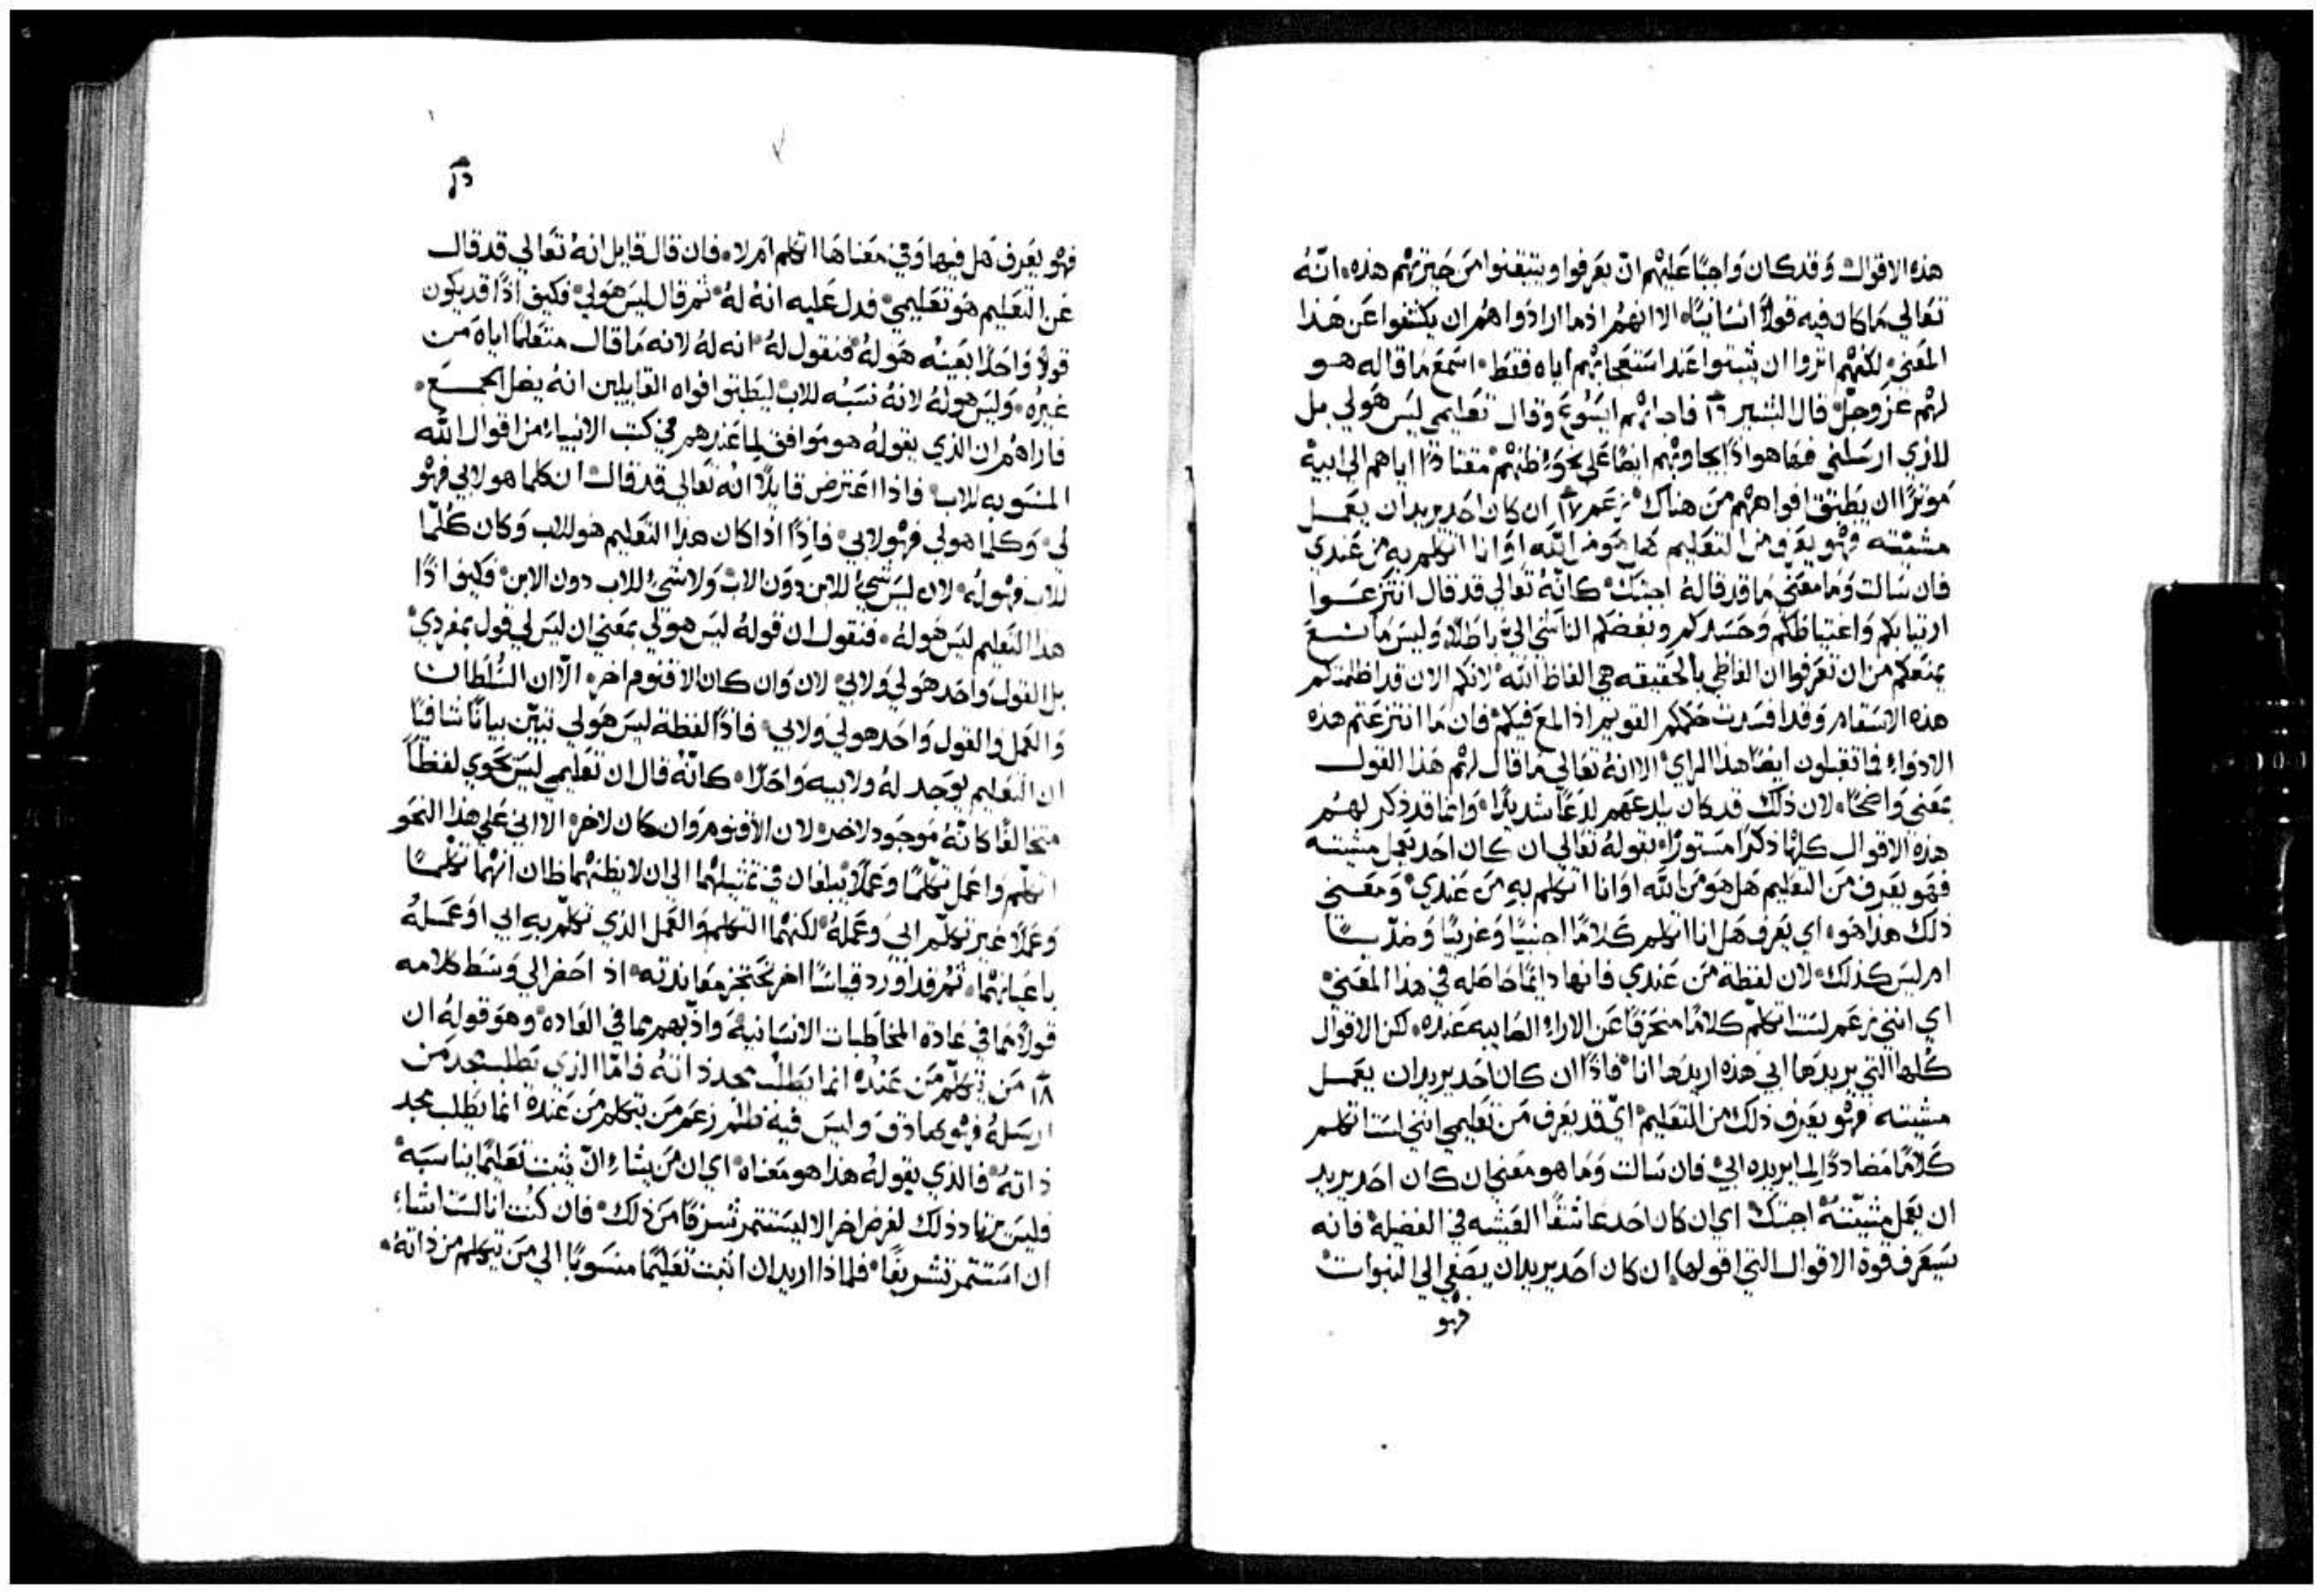 هذه الاقوال وَقد كان وَاجبًا عَليهم ان يعَرفوا ويتيقنوا من حَيرتهم هذه، انهُ
تعَالي مَا كان فيه قولاً انسَانيًا، الا انهم اذ ما ارادوا هم ان يكشفوا عَن هَذا
المعَني، لكنهم اثروا ان يثبتوا عَند استعجابهم اياه فقط، اسمَع مَا قاله هو
لهم عَز وجل قال البشير ١٦ فاجابهم ايسُوع وقال تعَليمي ليسَ هَو لي بل
للذي ارسَلني فها هو اذًا يجاوبهم ايضًا عَلي ظنهم مقتادًا اياهم الي ابيه
مَوثرًا ان يطبق افواههم من هناك زعَم ١٧ ان كان احَد يريد ان يعَمل
مشيته فهو يعَرف من التعَليم هَل هَو من الله اوَ انا اتكلم به من عَندي
فان سَالت وَمَا معَني مَا قد قالهُ اجبتك كانهُ تعَالي قد قال انتزعَوا
ارتيابكم وَاغتياظكم وَحسَدكم وبغضكم الناشي الي باطلاً، وَليسَ مَانع
يمنعَكم من ان تعَرفوا ان الفاظي بالحقيقه هي الفاظ الله لانكم الان قد اظلمتكم
هذه الاسقام وَقد افسَدت حكمكم القويم اذ المع فيكم فان مَا انتزعَتم هذه
الادوَاء فما تقبلون ايضًا هذا الراي الا انهُ تعَالي مَا قال لهم هَذا القول
بمعَني وَاضحًا، لان ذلك قد كان يلدعَهم لدعًا شديدًا، وَانما قد ذكر لهم
هذه الاقوال كلها ذكرًا مَستورًا، بقولهُ تعَالي ان كان احَد يعَمل مشيته
فهَو يعَرف من التعَليم هَل هَو من الله اوَ انا اتكلم به من عَندي وَمعَني
ذلك هَذا هَو، اي يعَرف هَل انا اتكلم كَلامًا اجنبيًا وَغريبًا وَ
ام ليسَ كذلك لان لفظة من عَندي فانها دايمًا حَاصله في هذا المعَني
اي انني زعَم لسَت اتكلم كلامًا منحرفًا عَن الارا الصَايبه عَنده، لكن الاقوال
كُلها التي يريدهَا ابي هَذه اريدهَا انا فاذًا ان كان احَد يريد ان يعَمل
مشيته فهو يعَرف ذلك من التعَليم اي قد يعَرف من تعَليمي انني لسَت اتكلم
كَلامًا مضاددًا لما يريده ابي فان سَالت وَمَا هو معَني ان كان احَد يريد
ان يعَمل مشيتهُ اجبتك اي ان كان احَد عَاشقًا العَيشه في الفضيلة فانه
سَيعَرف قوة الاقوال التي اقولها، ان كان احَد يريد ان يصَغي الي النبوات
فهو
فهو يعَرف هَل فيها وَفي معَناهَا اتكلم ام لا، فان قال قايل انهُ تعَالي قد قال
عَن التعَليم هَو تعَليمي فدل عَليه انهُ لهُ ثم قال ليسَ هَو لي فكيف اذًا قد يكون
قولاً وَاحَدًا بعَينهُ هَو لهُ فنقول لهُ انه لهُ لانه مَا قال متعَلمًا اياه من
غيره، وَليسَ هو لهُ لانهُ نسَبُه للاب ليطبق افواه القايلين انهُ يضل الجمع،
فاراهُم ان الذي يقولهُ هو مَوافق لما عَندهم في كتب الانبياء من اقوال الله
المنسَوبه للاب فاذا اعَترض قايلاً انهُ تعَالي قد قال ان كلما هو لابي فهو
لي وَكلما هو لي فهو لابي فاذًا اذا كان هذا التعَليم هَو للاب وَكان كُلما
للاب فهو لهُ لان ليسَ شي للابن دوَن الاب وَلا شي للاب دون الابن فكيف اذًا
هذا التعَليم ليسَ هَو لهُ، فنقول ان قولهُ ليسَ هَو لي بمعَني ان ليسَ لي قول بمفردي
بل القول وَاحَد هَو لي وَلابي لان وَان كان الاقنوم اخر، الا ان السُلطان
وَالعَمل وَالقول وَاحَد هو لي وَلابي فاذًا لفظة ليسَ هَو لي تبيّن بيانًا شافيًا
ان التعَليم يوجد لهُ وَلابيه وَاحَدًا، كانهُ قال ان تعَليمي ليسَ يحَوي لفظًا
متخالفًا كانهُ مَوجود لاخر لان الاقنوم وَان كان لاخر، الا اني عَلي هذا النحو
اتكلم وَاعَمل تكلمًا وَعَملاً يبلغان في تمثيلهما الي ان لا يظنهما ظان انهما تكلمًا
وَعَملاً غير تكلم ابي وَعَملهُ لكنهُما التكلم وَالعَمل الذي تكلم به ابي اوَ عَملهُ
باعَيانهما، ثم قد اوَرد قياسًا اخر اذ احَضر الي وَسَط كلامه
قولاً مما في عَادة المخاطبات الانسَانية وَادّبهم مما في العَاده وهوَ قوله ان
١٨ مَن يتكلم من عَنده انما يَطلب مجد ذاتهُ فامّا الذي يَطلب مجد من
ارسَلهُ فهو صَادق وليسَ فيه ظلم زعَم من يتكلم من عَنده انما يطلب مجد
ذاتهُ فالذي يقولهُ هذا هو مَعناه اي ان من يشاء ان يثبت تعَليمًا يناسَبه
فليسَ يريد ذلك لغرض اخر الا ليسَتثمر شرفًا من ذلك فان كنُت انا لسَت اشاء
ان اسَتثمر تشريفًا فلماذا اريد ان اثبت تعَليمًا منسَوبًا الي من يتكلم من ذاتهُ،